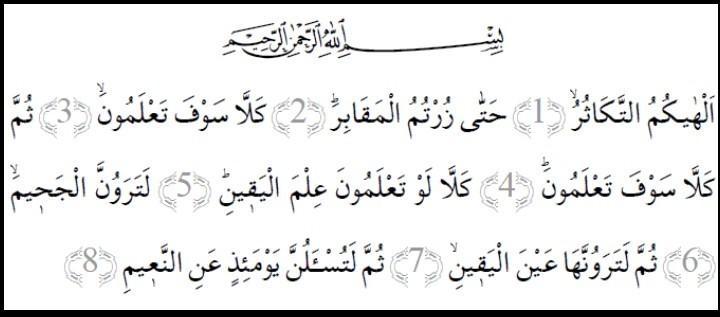 بِسْمِ اللهِ الرَّحْمٰنِ الرَّحِيمِ
اَلْهٰيكُمُ التَّكَاثُرُۙ ﴿1﴾ حَتّٰى زُرْتُمُ الْمَقَابِرَۜ ﴿2﴾ كَلَّا سَوْفَ تَعْلَمُونَۙ ﴿3﴾ ثُمَّ
كَلَّا سَوْفَ تَعْلَمُونَۜ ﴿4﴾ كَلَّا لَوْ تَعْلَمُونَ عِلْمَ الْيَق۪ينِۜ ﴿5﴾ لَتَرَوُنَّ الْجَح۪يمَۙ
﴿6﴾ ثُمَّ لَتَرَوُنَّهَا عَيْنَ الْيَق۪ينِۙ ﴿7﴾ ثُمَّ لَتُسْـَٔلُنَّ يَوْمَئِذٍ عَنِ النَّع۪يمِ ﴿8﴾